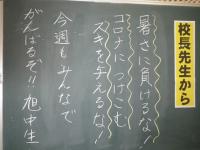 校長先生から
暑さに負けるな!
コロナにつけこむ
スキを与えるな!
今週もみんなで
がんばるぞ!! 旭中生